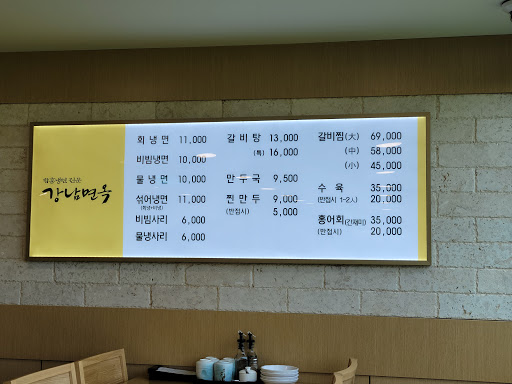 함흥냉면 전문
강남면옥
회 냉 면 11,000
비빔냉면 10,000
물 냉 면 10,000
섞어냉면 11,000
비빔사리 6,000
물냉사리 6,000
갈 비 탕 13,000
(특) 16,000
만 두 국 9,500
찐 만 두 9,000
(반접시) 5,000
갈비찜(大) 69,000
(中) 58,000
(小) 45,000
수 육 35,000
(반접시 1-2人) 20,000
홍어회(간재미) 35,000
(반접시) 20,000